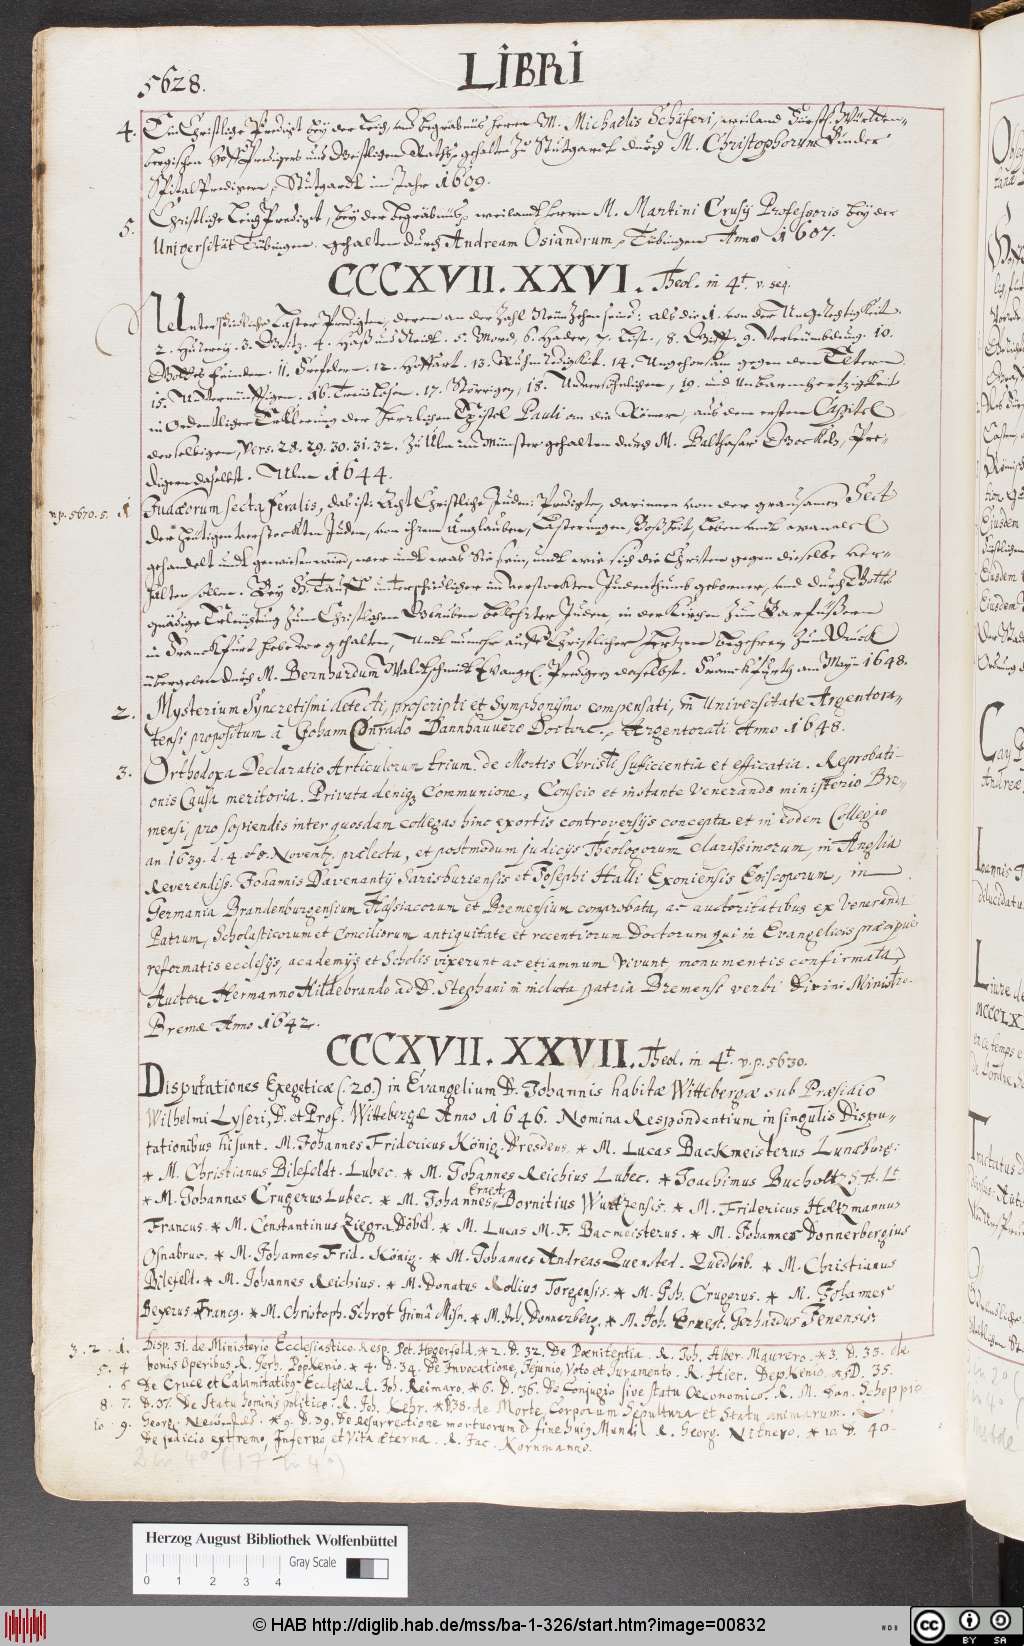 5628.
LIBRI
4. Ein Christliche Predigt bey der Leich und begräbnus herrn M. Michaelis Schäferi, weiland Fürstl. Württem-
bergischen Hoff Predigers und Geistlichen Raths, gehalten zu Stutgardt durch M. Christophorum Binder
Spital Predigern, Stutgardt im Jahr 1609.
5. Christliche Leich Predigt, bey der begräbnüs weilandt herrn M. Martini Crusij Professoris bey der
Universität Tübingen. gehalten durch Andream Osiandrum, Tübingen Anno 1607.
CCCXVII. XXVI. Theol. in 4t. v. seq.
Unterschidliche Laster Predigten, deren an der Zahl Neünzehen seind: als die 1. von der Ungerechtigkeit
2. Hurerey. 3. Geitz. 4. Haß und Neidt. 5. Mord. 6. Hader. 7. List. 8. Gifft. 9. Verleumbdung. 10.
Gottes feinden. 11. Frefelern. 12. Hoffart. 13. Ruhmredigkeit. 14. Ungehorsam gegen den Eltern
15. Unvernünfftigen. 16. Treulosen. 17. Störrigen, 18. Unversöhnlichen, 19. und Unbarmhertzigkeit
in Ordentlicher Erklerung der herrlichen Epistel Pauli an die Römer, aus dem ersten Capitel
derselbigen, Vers. 28. 29. 30. 31. 32. Zu Ulm im Münster gehalten durch M. Balthasar Gockeln, Pre-
digern daselbst. Ulm 1644.
v. p. 5670. 5. 1 Judæorum secta feralis, das ist: Acht Christliche Juden Predigten, darinnen von der grausamen Sect
der heutigen verstockten Juden, von ihrem Unglauben, Lästerungen, Boßheit, Leben und wandel
gehandelt undt gewiesen wird, wer undt was Sie sein, undt wie sich die Christen gegen dieselbe ver-
halten sollen. Bey H. Tauff unterschiedlicher im verstockten Judenthumb geborner, und durch Gottes
gnädige Erleuchtung zum Christlichen Glauben bekehrter Juden, in der Kirchen zum Barfüßern
in Franckfurt gehalten, Undt nunmehr auff Christlicher Hertzen begehren zum Druck
übergeben durch M. Bernhardum Waldschmidt Evangel. Predigern daselbst. Franckfurt am Mayn 1648.
2. Mysterium Syncretismi detecti, proscripti et Symphonismo compensati, in Universitate Argentora-
tensi propositum à Johann Conrado Dannhauvero Doctore. Argentorati Anno 1648.
3. Orthodoxa Declaratio Articulorum trium. de Mortis Christi sufficientia et efficatia. Reprobati-
onis Causa meritoria. Privata deniq3 Communione, Conscio et instante Venerando ministerio Bre-
mensi, pro sopiendis inter quosdam collegas hinc exortis controversijs concepta et in eodem Collegio
an. 1639. d. 4. et 8. Novemb. prælecta, et postmodum judicijs Theologorum clarissimorum, in Anglia
Reverendiss. Johannis Davenantij Sarisburiensis et Josephi Halli Exoniensis Episcoporum, in
Germania Brandenburgensium Hassiacorum et Bremensium comprobata, ac auctoritatibus ex Veneranda
Patrum, Scholasticorum et Conciliorum antiquitate et recentiorum Doctorum qui in Evangelicis præcipue
reformatis ecclesijs, academijs et Scholis vixerunt ac etiamnum vivunt monumentis confirmata,
Auctore Hermanno Hildebrando ad D. Stephani in incluta patria Bremensi verbi Divini Ministro.
Bremæ Anno 1642.
CCCXVII. XXVII. Theol. in 4t. v. p. 5630.
Disputationes Exegeticæ (: 20.) in Evangelium D. Johannis habitæ Wittebergæ sub Præsidio
Wilhelmi Lyseri, D. et Prof. Wittebergæ Anno 1646. Nomina Respondentium in singulis Dispu-
tationibus hi sunt. M. Johannes Fridericus König. Dresdens. * M. Lucas Backmeisterus Lunæburg.
* M. Christianus Bilefeldt. Lubec. * M. Johannes Reichius Lubec. * Joachimus Bucholtz S. Th. Lt.
* M. Johannes Crugerus Lubec. * M. Johannes Ernest. Bornitius Wurtzensis. * M. Fridericus Holtzmannus
Francus. * M. Constantinus Ziegra Döbel. * M. Lucas M. F. Bacmeisterus. * M. Johannes Donnerbergius
Osnabruc. * M. Johannes Frid. König. * M. Johannes Andreas Quensted. Quedlinb. * M. Christianus
Bilefeldt. * M. Johannes Reichius. * M. Donatus Rollius Torgensis. * M. Joh. Crugerus. * M. Johannes
Beyerus Francq. * M. Christoph. Schrot Grimâ Misn. * M. Joh. Donnerberg. * M. Joh. Ernest. Gerhardus Jenensis.
3. 2. 1. Disp. 31. de Ministerio Ecclesiastico. Resp. Pet. Hegerfeld. * 2. D. 32. De Pœnitentia. R. Joh. Alber. Maurero. * 3. D. 33. de
5. 4 bonis Operibus. R. Gerh. Popkenio. * 4. D. 34. De Invocatione, Jejunio, Voto et Juramento. R. Hier. Depkenio. * 5 D. 35.
6 De Cruce et Calamitatibus Ecclesiæ. R. Joh. Reimaro. * 6. D. 36. de Conjugio sive statu Œconomico. R. M. Dan. Schoppio
8. 7. D. 37. De Statu hominis politico. R. Joh. Kehr. * 8. D. 38. de Morte Corporum Sepultura et Statu animarum. R.
10 9. Georg. * 9. D. 39. De Resurrectione mortuorum et fine hujus Mundi R. Georg. Nitnero. * 10. D. 40.
De judicio extremo, Inferno et Vita æterna. R. Jac. Kornmanno.
Herzog August Bibliothek Wolfenbüttel
Gray Scale
0 1 2 3 4
© HAB http://diglib.hab.de/mss/ba-1-326/start.htm?image=00832
cc BY SA